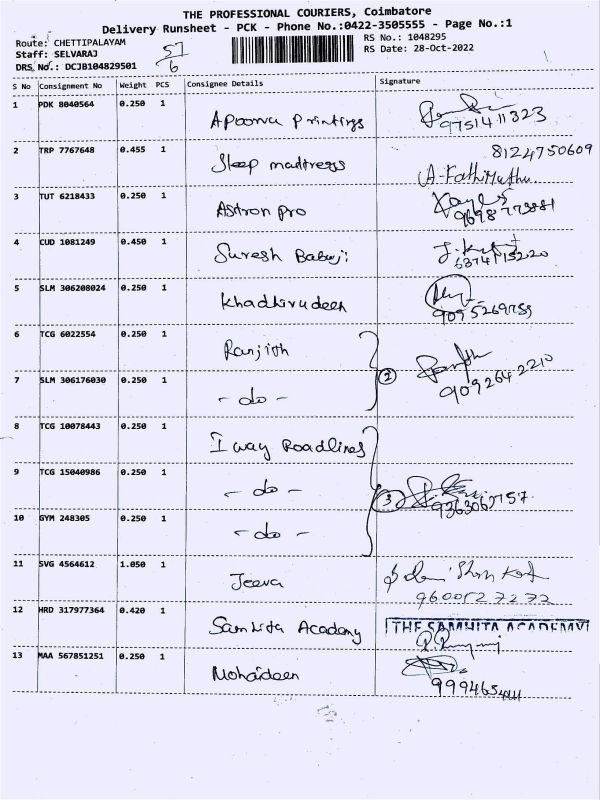 THE PROFESSIONAL COURIERS, Coimbatore
Delivery Runsheet - PCK - Phone No.:0422-3505555 - Page No.:1
Route: CHETTIPALAYAM
Staff: SELVARAJ
DRS No.: DCJB104829501
57
6
RS No.: 1048295
RS Date: 28-Oct-2022
S No Consignment No Weight PCS Consignee Details Signature
1 PDK 8040564 0.250 1 Apoorva Printings 9751411323
2 TRP 7767648 0.455 1 Sleep mattress 8124750609
A-Kathimuthu
3 TUT 6218433 0.250 1 Astron pro
4 CUD 1081249 0.450 1 Suresh Babuji 6374115220
5 SLM 306208024 0.250 1 Khadhirudeen
6 TCG 6022554 0.250 1 Ranjith
7 SLM 306176030 0.250 1 - do - 2 9092642210
8 TCG 10078443 0.250 1 I way Roadlines
9 TCG 15040986 0.250 1 - do - 3
10 GYM 248305 0.250 1 - do -
11 SVG 4564612 1.050 1 Jeeva
9600527272
12 HRD 317977364 0.420 1 Samhita Academy THE SAMHITA ACADEMY
13 MAA 567851251 0.250 1 Mohaideen